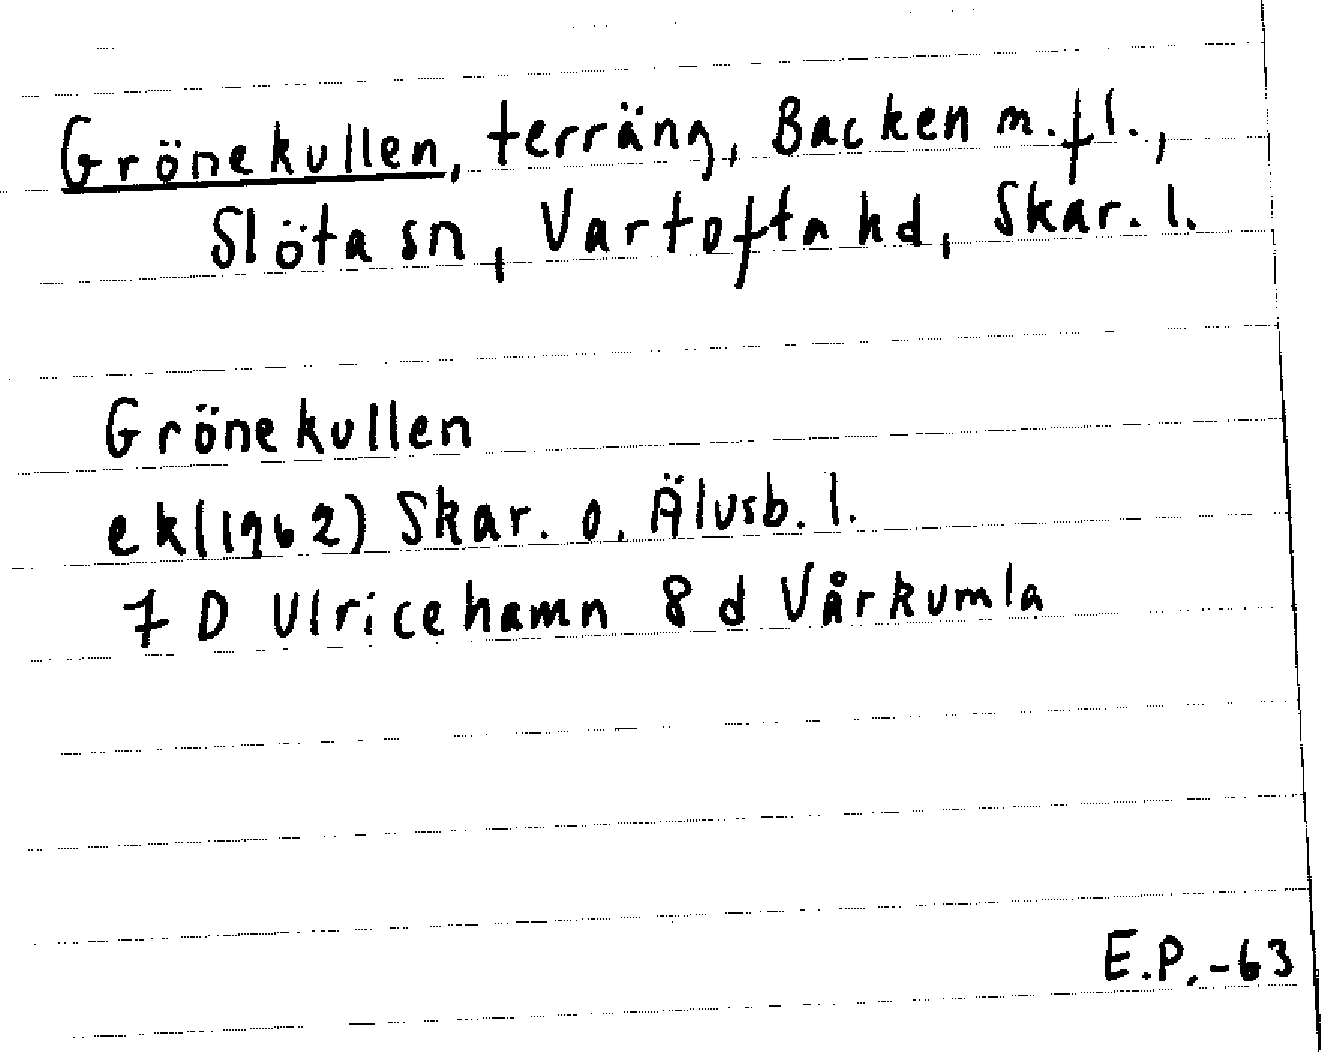 Grönekullen, terräng, Backen m.fl.,
Slöta sn, Vartofta hd, Skar. l.
Grönekullen
ek(1962) Skar. o. Älvsb. l.
7 D Ulricehamn 8 d Vårkumla
E.P.-63